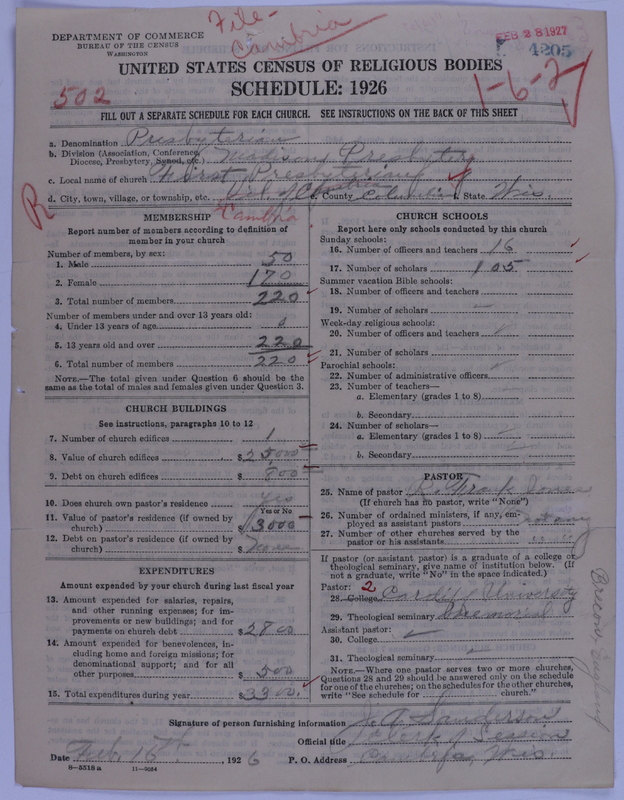 File-
Cambria
DEPARTMENT OF COMMERCE
BUREAU OF THE CENSUS
WASHINGTON
FEB 28 1927
4205
UNITED STATES CENSUS OF RELIGIOUS BODIES
SCHEDULE: 1926
502
1-6-27
FILL OUT A SEPARATE SCHEDULE FOR EACH CHURCH. SEE INSTRUCTIONS ON THE BACK OF THIS SHEET
a. Denomination Presbyterian
b. Division (Association, Conference, Diocese, Presbytery, Synod, etc.) Madison Presbytery
c. Local name of church First Presbyterian
d. City, town, village, or township, etc. Vil. of Cambria e. County Columbia f. State Wis.
R
Cambria
MEMBERSHIP
Report number of members according to definition of
member in your church
Number of members, by sex:
1. Male 50
2. Female 170
3. Total number of members 220
Number of members under and over 13 years old:
4. Under 13 years of age 0
5. 13 years old and over 220
6. Total number of members 220
NOTE.—The total given under Question 6 should be the
same as the total of males and females given under Question 3.
CHURCH BUILDINGS
See instructions, paragraphs 10 to 12
7. Number of church edifices 1
8. Value of church edifices $25,000
9. Debt on church edifices $ 800
10. Does church own pastor's residence Yes
Yes or No
11. Value of pastor's residence (if owned by
church) $3000
12. Debt on pastor's residence (if owned by
church) $
EXPENDITURES
Amount expended by your church during last fiscal year
13. Amount expended for salaries, repairs,
and other running expenses; for im-
provements or new buildings; and for
payments on church debt $2800
14. Amount expended for benevolences, in-
cluding home and foreign missions; for
denominational support; and for all
other purposes $ 500
15. Total expenditures during year $3300
CHURCH SCHOOLS
Report here only schools conducted by this church
Sunday schools:
16. Number of officers and teachers 16
17. Number of scholars 105
Summer vacation Bible schools:
18. Number of officers and teachers
19. Number of scholars
Week-day religious schools:
20. Number of officers and teachers
21. Number of scholars
Parochial schools:
22. Number of administrative officers
23. Number of teachers—
a. Elementary (grades 1 to 8)
b. Secondary
24. Number of scholars—
a. Elementary (grades 1 to 8)
b. Secondary
PASTOR
25. Name of pastor Frank Jones
(If church has no pastor, write "None")
26. Number of ordained ministers, if any, em-
ployed as assistant pastors not any
27. Number of other churches served by the
pastor or his assistants
If pastor (or assistant pastor) is a graduate of a college or
theological seminary, give name of institution below. (If
not a graduate, write "No" in the space indicated.)
Pastor: 2
28. College Cardiff University
29. Theological seminary Memorial
Assistant pastor:
30. College
31. Theological seminary
NOTE.—Where one pastor serves two or more churches,
Questions 28 and 29 should be answered only on the schedule
for one of the churches; on the schedules for the other churches,
write "See schedule for church."
Signature of person furnishing information Sanderson
Official title Clerk of Session
Date Feb. 15th, 1926 P. O. Address Cambria, Wis.
8-5518 a 11-9084